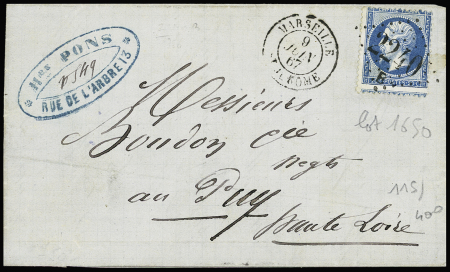 Hte PONS
n 549
RUE DE L'ARBRE 13
MARSEILLE
9
JUIN
67
R. ROME
2240
B
lot 1650
Messieurs
Boudon cie
Negts
au Puy
Haute Loire
115/
400